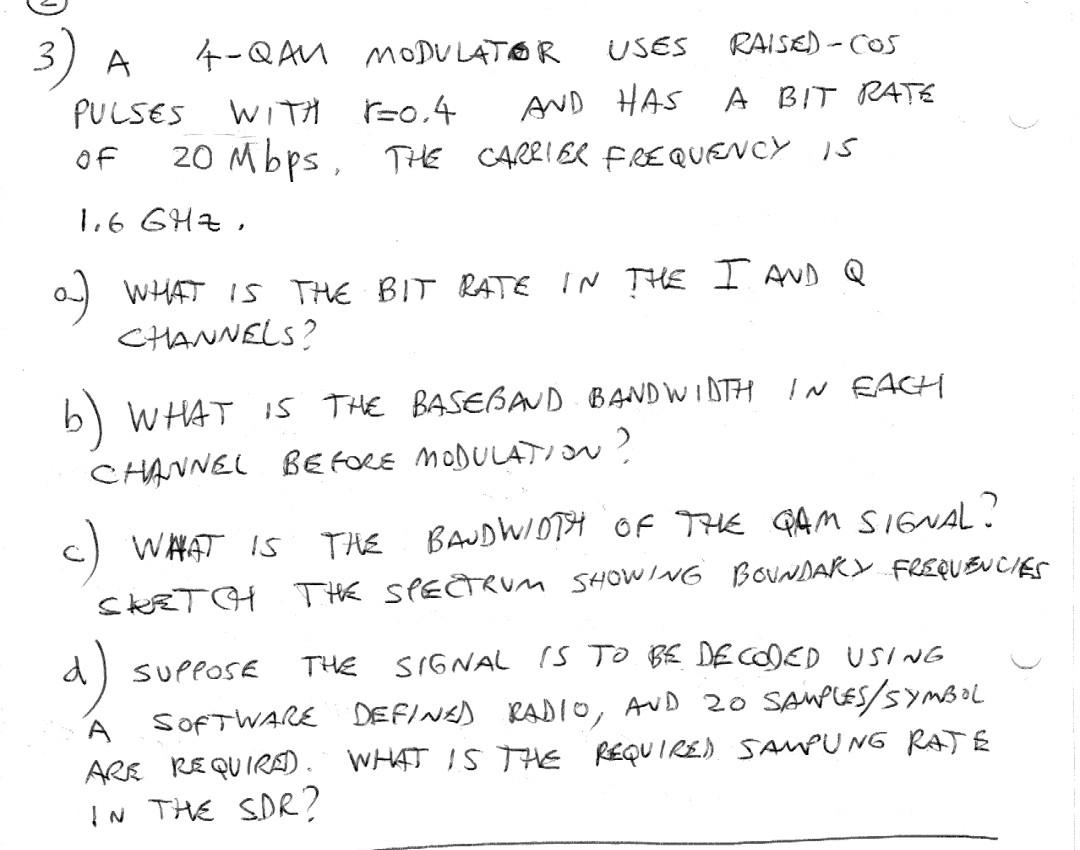 2
3) A 4-QAM MODULATOR USES RAISED-COS
PULSES WITH r=0.4 AND HAS A BIT RATE
OF 20 Mbps, THE CARRIER FREQUENCY IS
1.6 GHz.
a) WHAT IS THE BIT RATE IN THE I AND Q
CHANNELS?
b) WHAT IS THE BASEBAND BANDWIDTH IN EACH
CHANNEL BEFORE MODULATION?
c) WHAT IS THE BANDWIDTH OF THE QAM SIGNAL?
SKETCH THE SPECTRUM SHOWING BOUNDARY FREQUENCIES
d) SUPPOSE THE SIGNAL IS TO BE DECODED USING
A SOFTWARE DEFINED RADIO, AND 20 SAMPLES/SYMBOL
ARE REQUIRED. WHAT IS THE REQUIRED SAMPLING RATE
IN THE SDR?